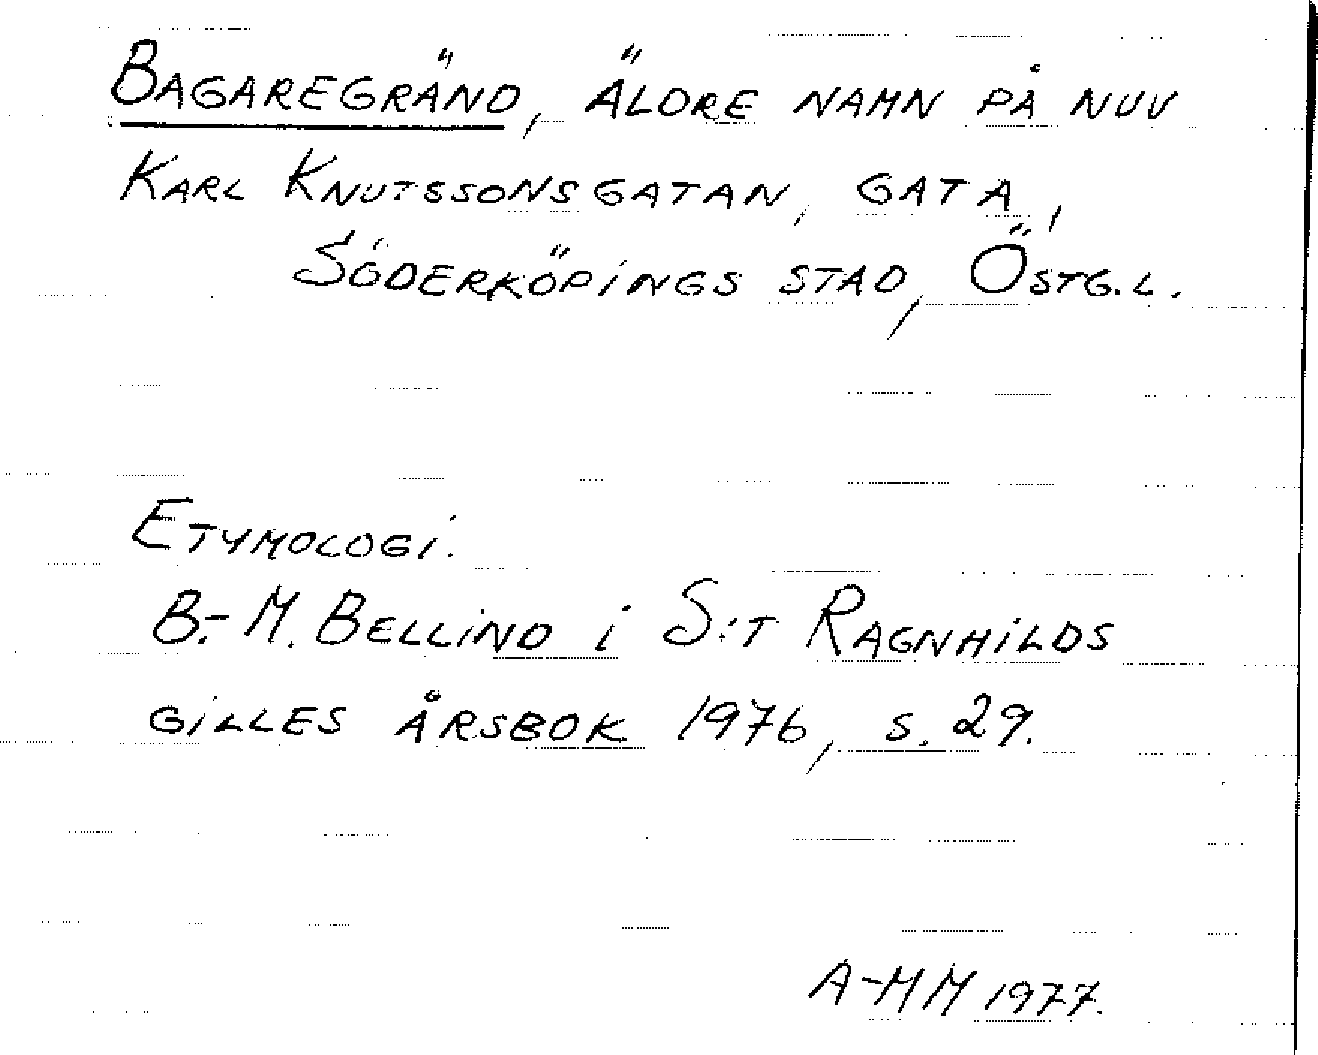 BAGAREGRÄND, ÄLDRE NAMN PÅ NUV
KARL KNUTSSONSGATAN, GATA,
SÖDERKÖPINGS STAD, ÖSTG.L.
ETYMOLOGI.
B.-M. BELLIND I S:T RAGNHILDS
GILLES ÅRSBOK 1976, S. 29.
A-MM 1977.